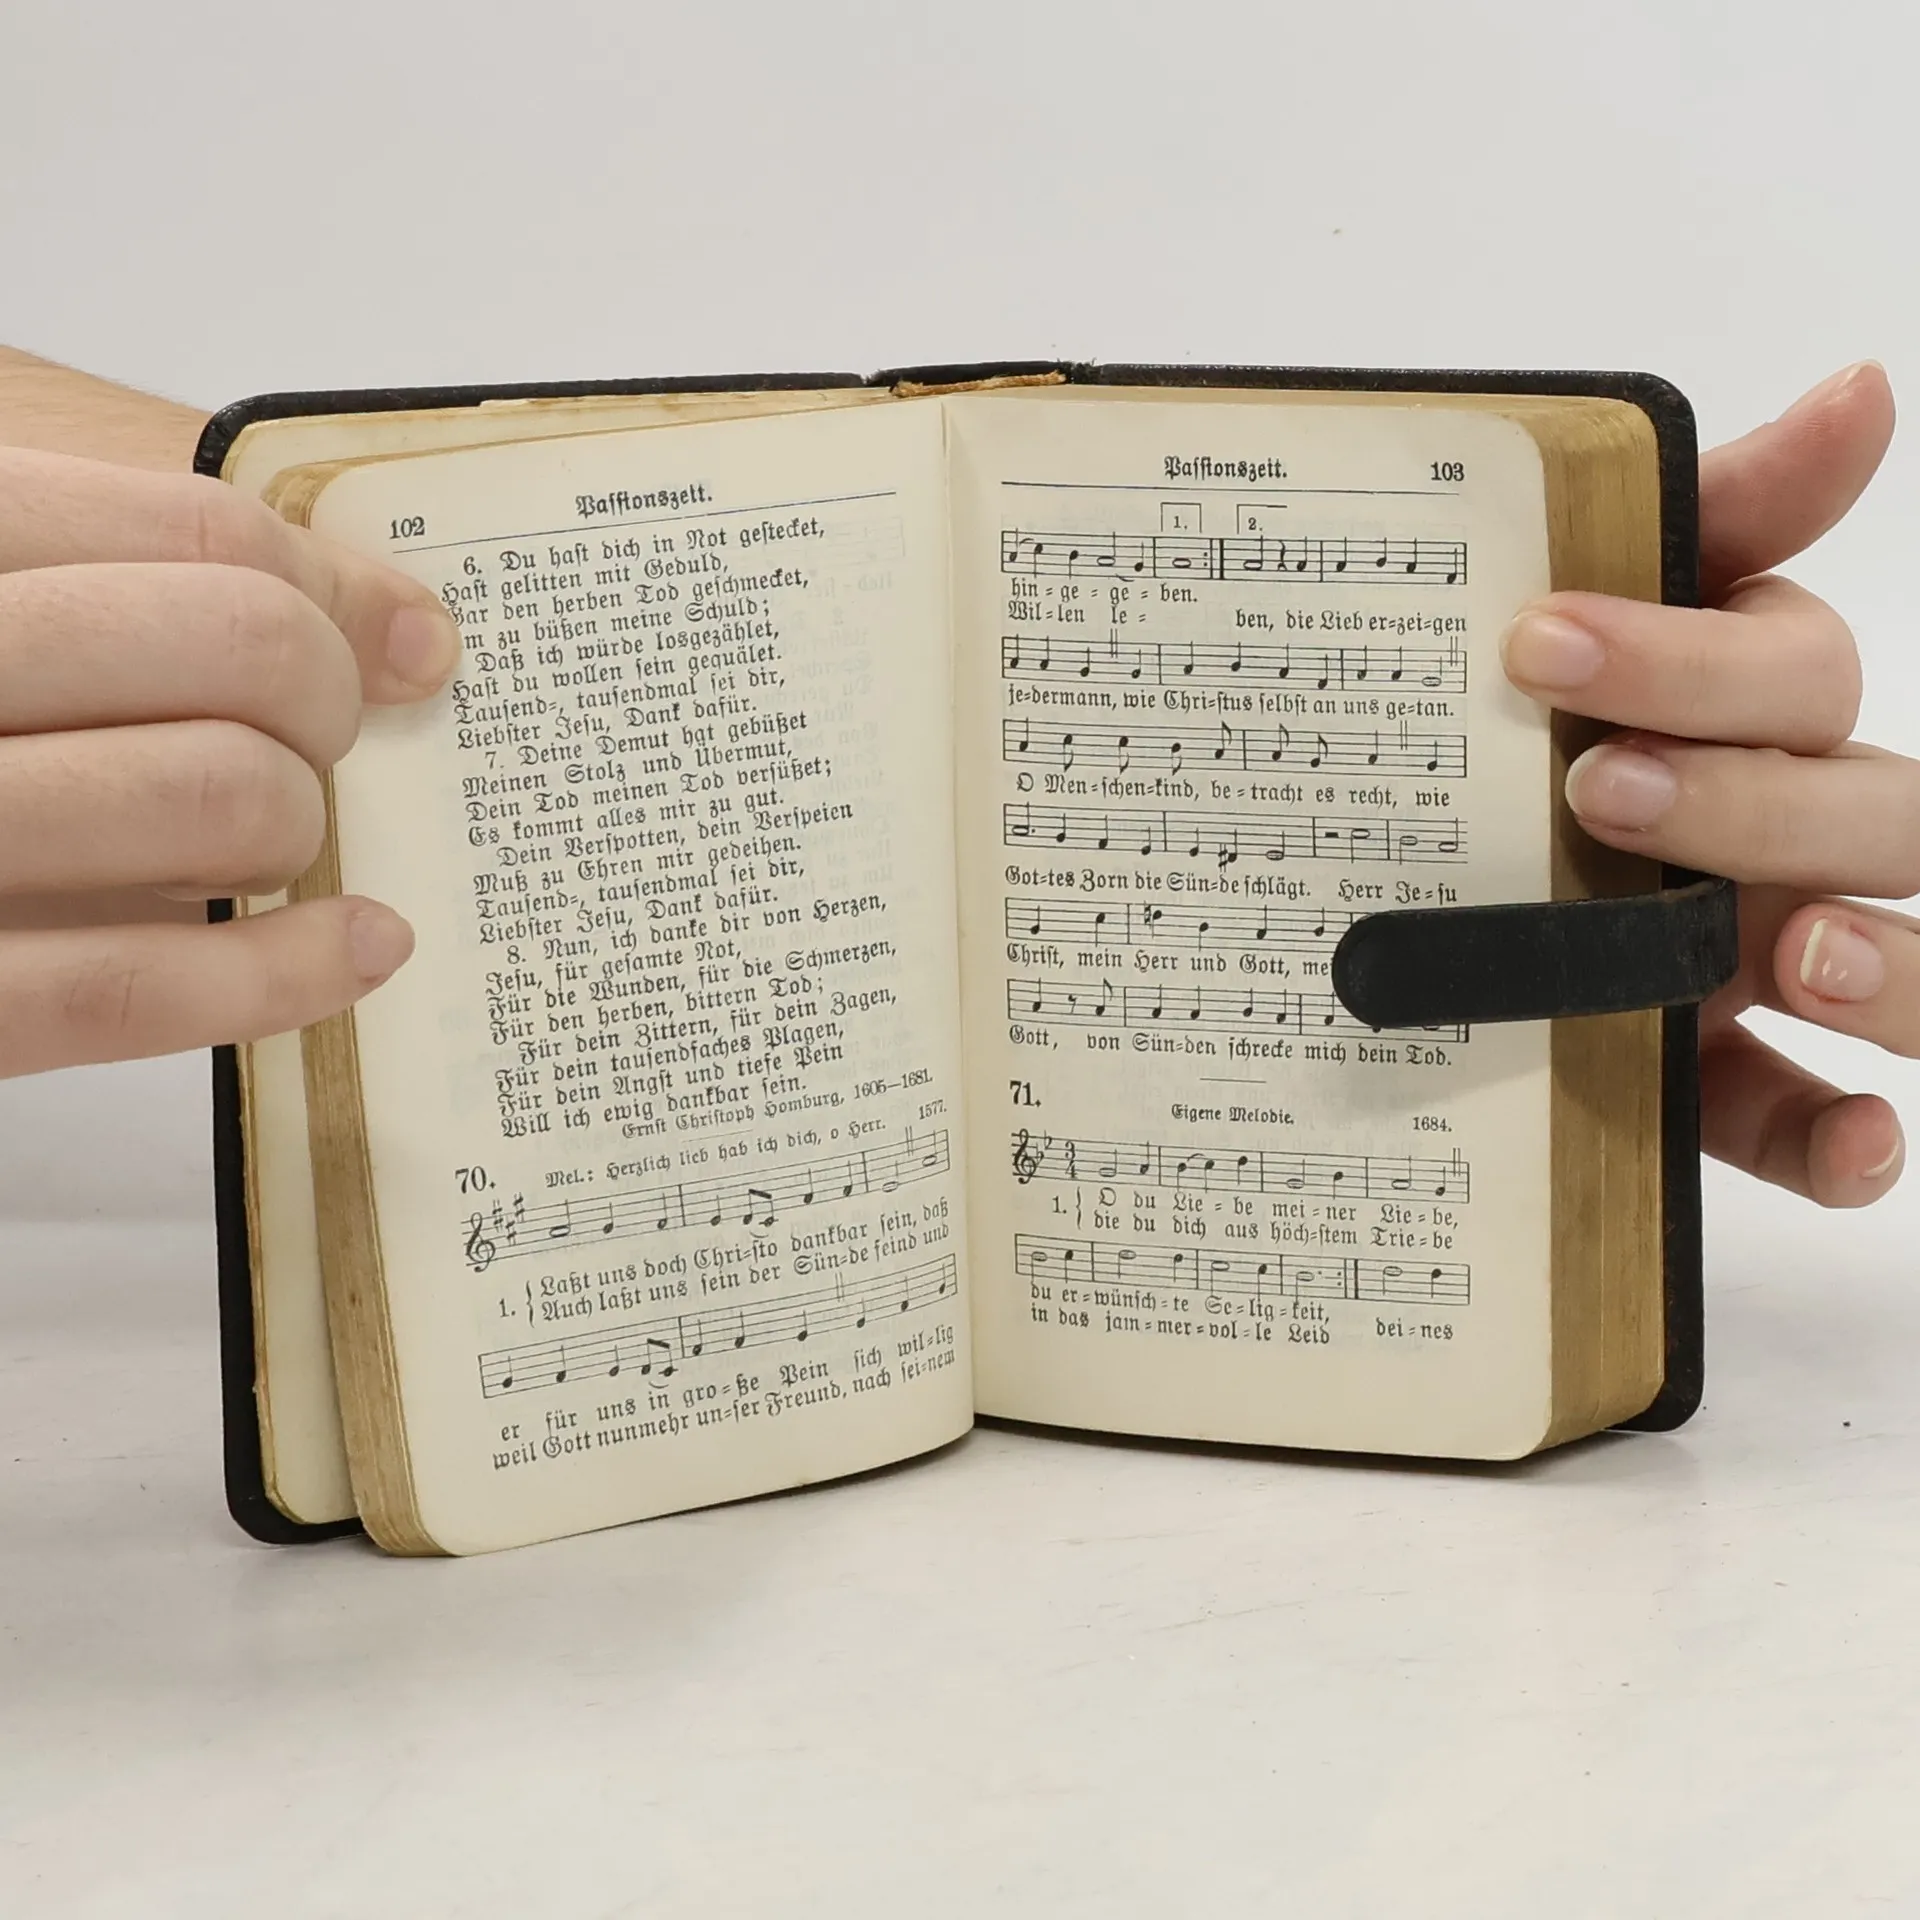 102
Passionszeit.
6. Du hast dich in Not gestecket,
Hast gelitten mit Geduld,
Gar den herben Tod geschmecket,
m zu büßen meine Schuld;
Daß ich würde losgezählet,
Hast du wollen sein gequälet.
Tausend=, tausendmal sei dir,
Liebster Jesu, Dank dafür.
7. Deine Demut hat gebüßet
Meinen Stolz und Übermut,
Dein Tod meinen Tod versüßet;
Es kommt alles mir zu gut.
Dein Verspotten, dein Verspeien
Muß zu Ehren mir gedeihen.
Tausend=, tausendmal sei dir,
Liebster Jesu, Dank dafür.
8. Nun, ich danke dir von Herzen,
Jesu, für gesamte Not,
Für die Wunden, für die Schmerzen,
Für den herben, bittern Tod;
Für dein Zittern, für dein Zagen,
Für dein tausendfaches Plagen,
Für dein Angst und tiefe Pein
Will ich ewig dankbar sein.
Ernst Christoph Homburg, 1605—1681.
70. Mel.: Herzlich lieb hab ich dich, o Herr. 1577.
1. { Laßt uns doch Chri=sto dankbar sein, daß
Auch laßt uns sein der Sün=de feind und
er für uns in gro=ße Pein sich wil=lig
weil Gott nunmehr un=ser Freund, nach sei=nem
Passionszeit. 103
1. 2.
hin = ge = ge = ben.
Wil=len le = ben, die Lieb er=zei=gen
je=dermann, wie Chri=stus selbst an uns ge=tan.
O Men=schen=kind, be=tracht es recht, wie
Got=tes Zorn die Sün=de schlägt. Herr Je=su
Christ, mein Herr und Gott, mei
Gott, von Sün=den schrecke mich dein Tod.
71. Eigene Melodie. 1684.
3
4
1. { O du Lie = be mei = ner Lie = be,
die du dich aus höch=stem Trie=be
du er=wünsch=te Se=lig=keit,
in das jam=mer=vol=le Leid dei=nes